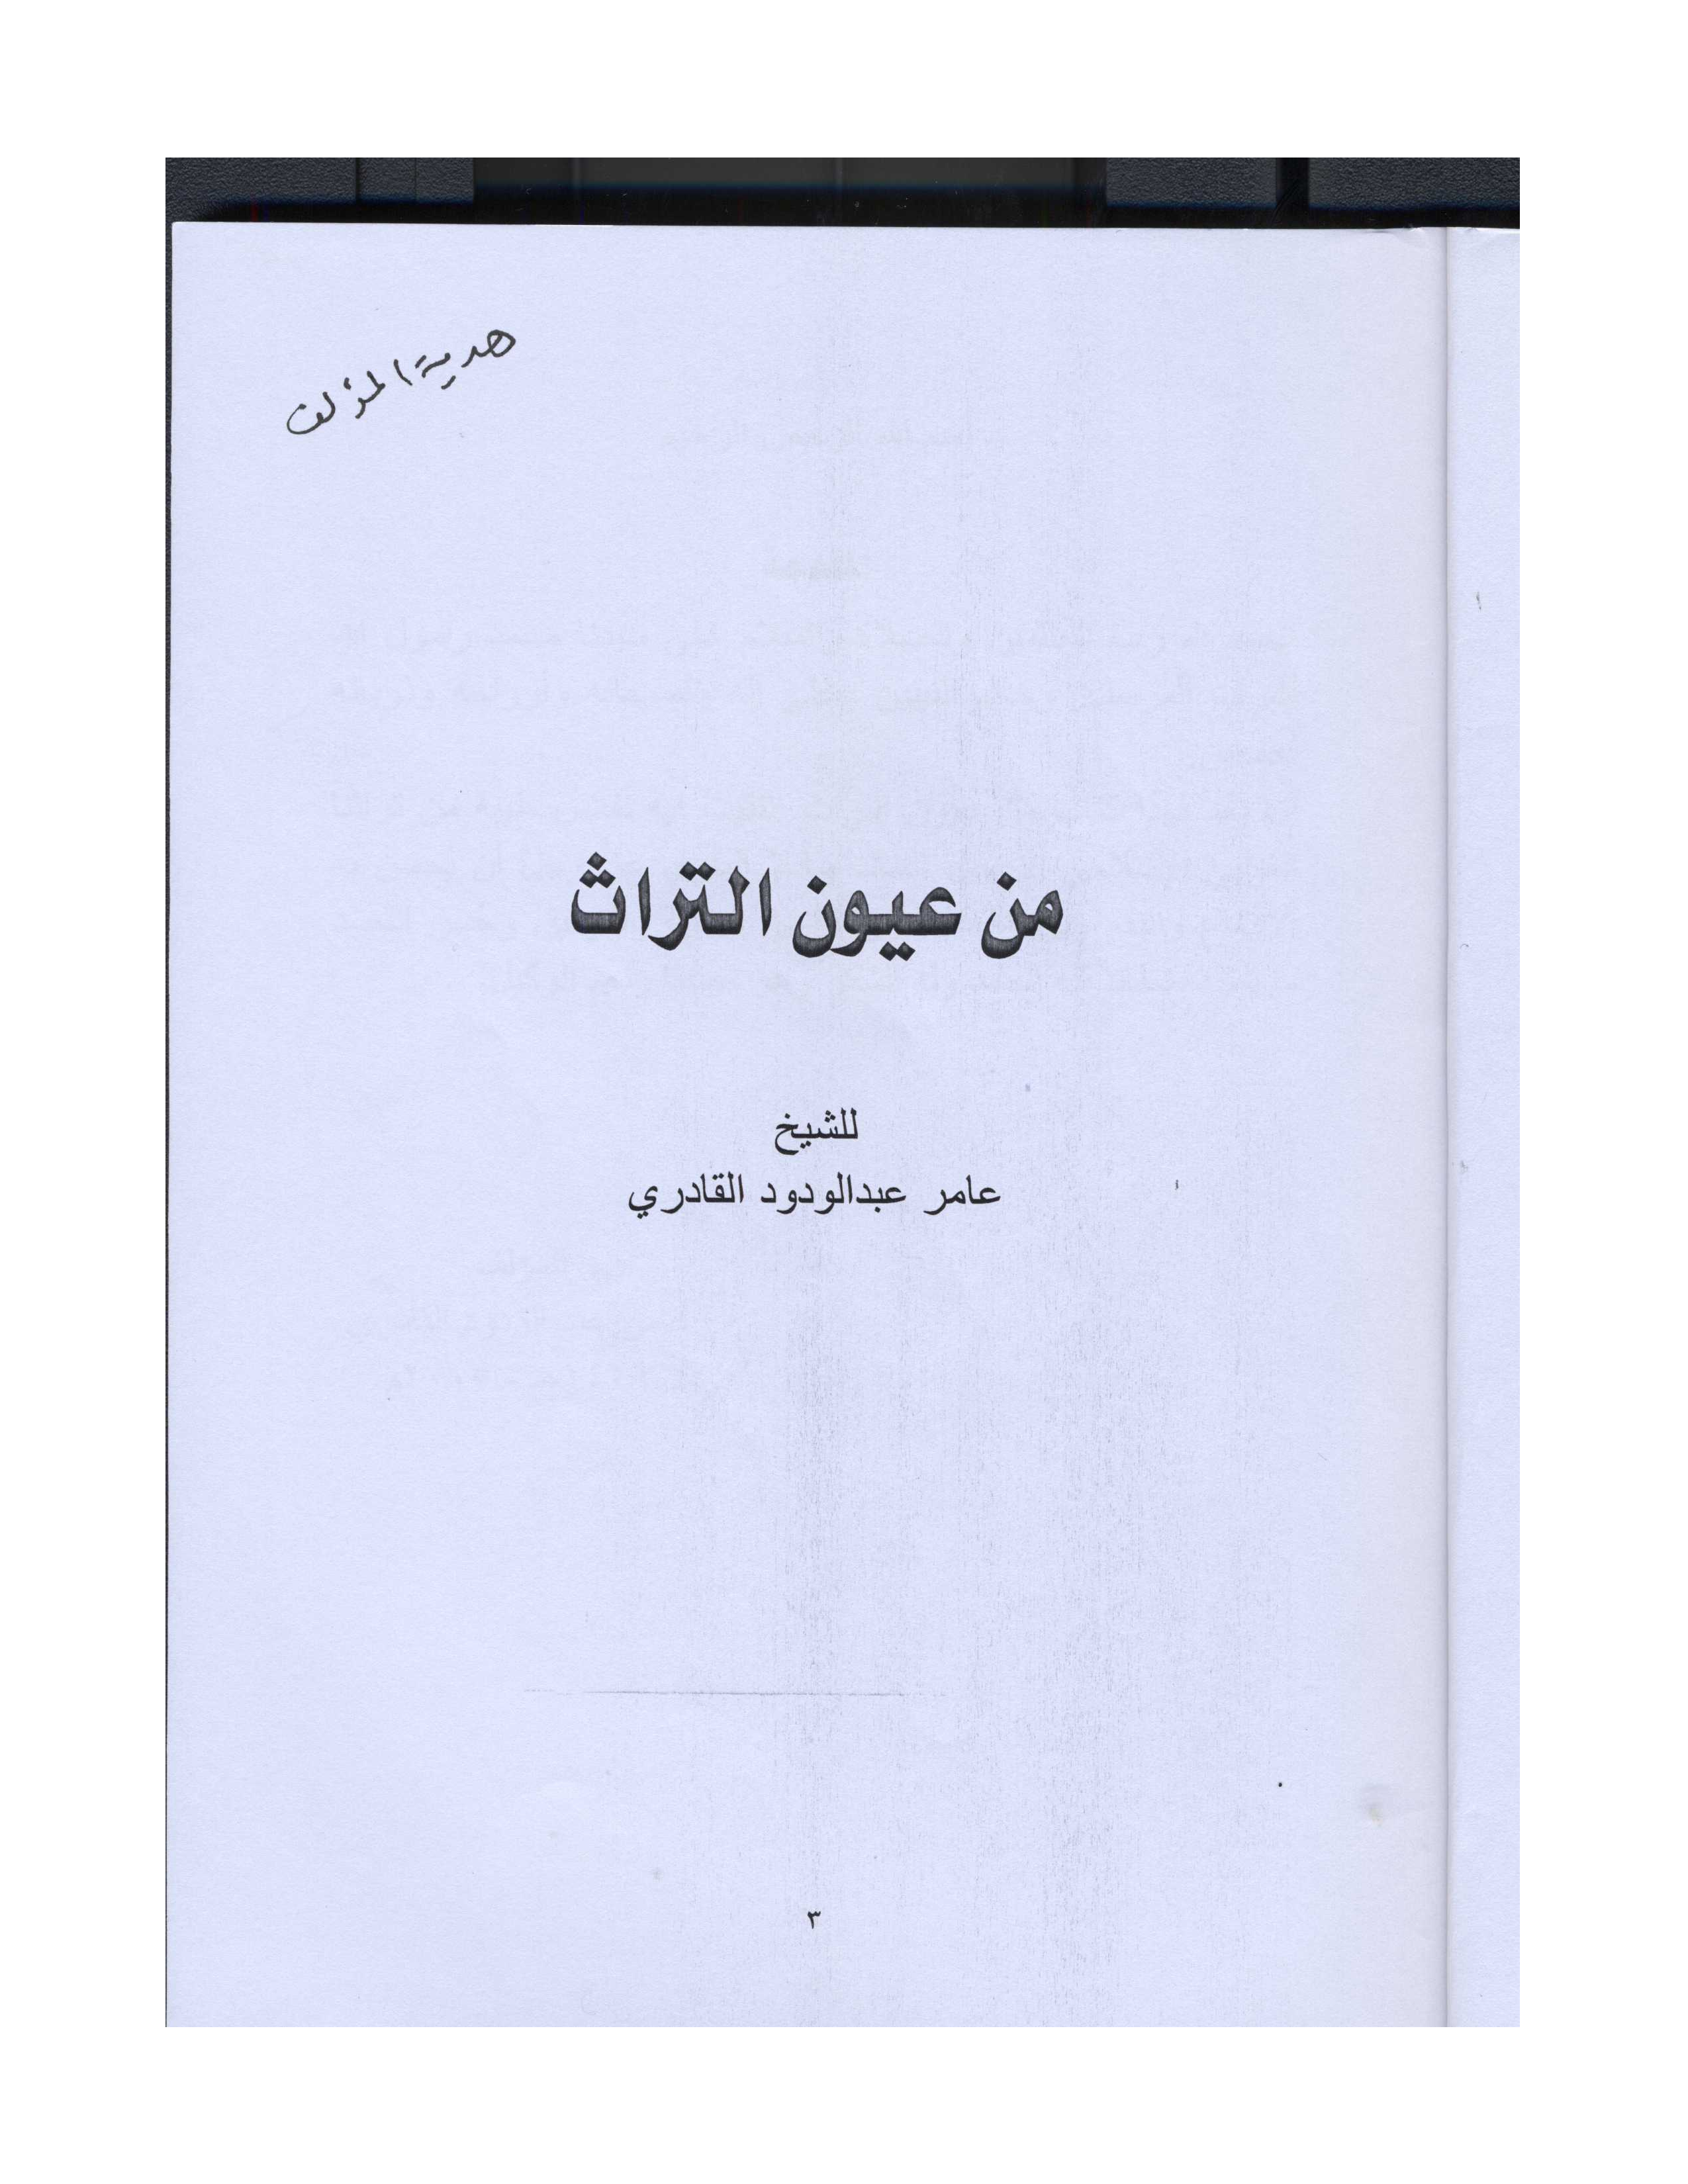 هدية المؤلف
من عيون التراث
للشيخ
عامر عبدالودود القادري
٣